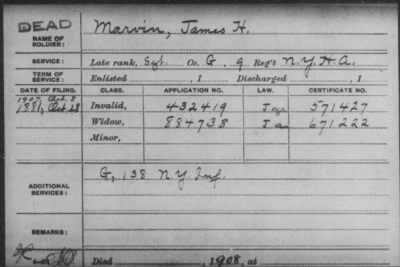 DEAD
NAME OF SOLDIER: Marvin, James H.
SERVICE: Late rank, Sgt. Co. G, 9 Reg't N.Y.H.A.
TERM OF SERVICE: Enlisted , 1 Discharged , 1
DATE OF FILING. CLASS. APPLICATION NO. LAW. CERTIFICATE NO.
1881, Oct. Invalid, 432419 571427
1907, Oct. 8 Widow, 884738 671222
Minor,
ADDITIONAL SERVICES: G, 138 N.Y. Inf.
REMARKS:
Died , 1908, at